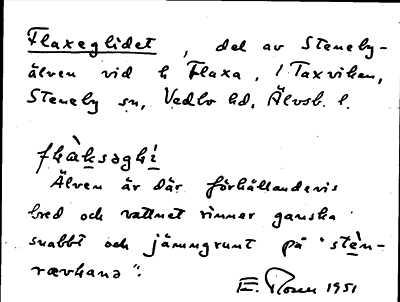 Flaxeglidet, del av Steneby-
älven vid h Flaxa, i Taxviken,
Steneby sn, Vedbo hd, Älvsb. l.
flàksəglì
Älven är där förhållandevis
bred och vattnet rinner ganska
snabbt och jämngrunt på "stèn-
rævhanə".
E. Rosen 1951